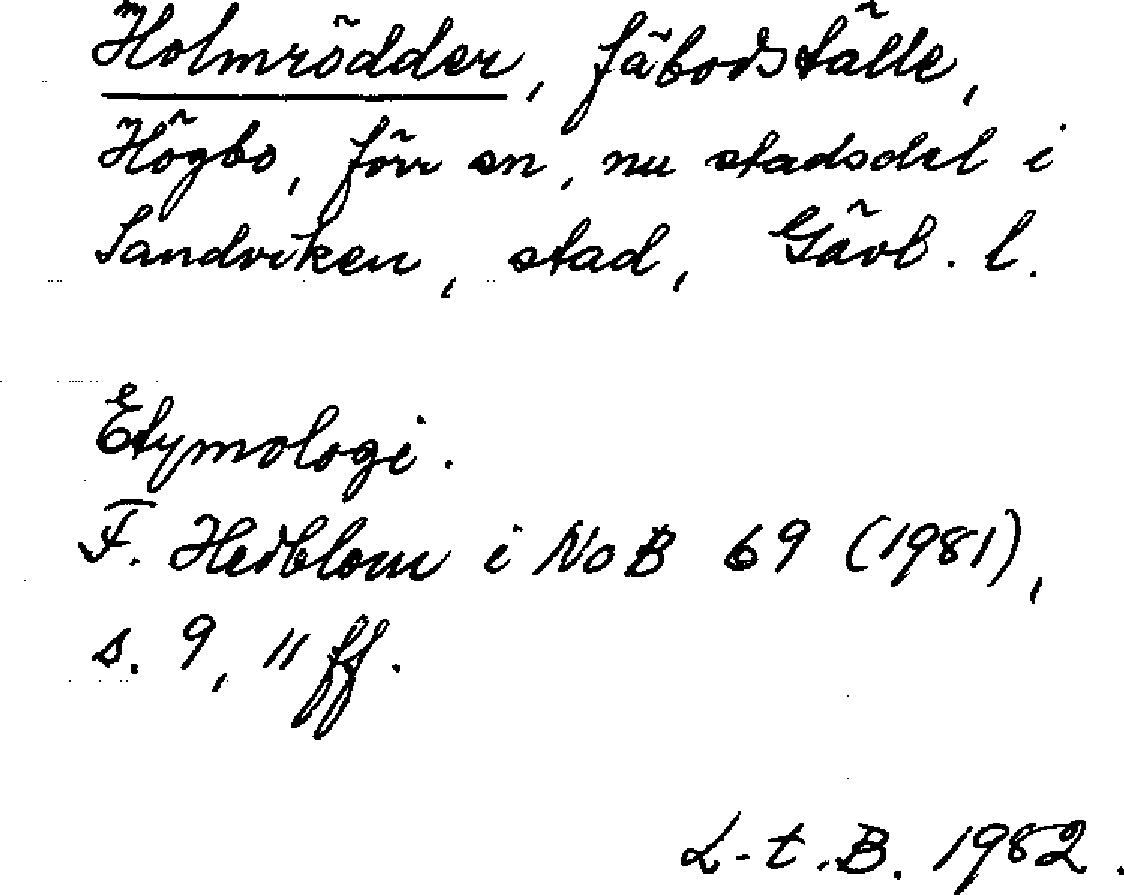 Holmrödder, fäbodställe,
Högbo, förr sn, nu stadsdel i
Sandviken, stad, Gävl. l.
Etymologi.
F. Hedblom i NoB 69 (1981),
s. 9, 11 ff.
L-t.B. 1982.